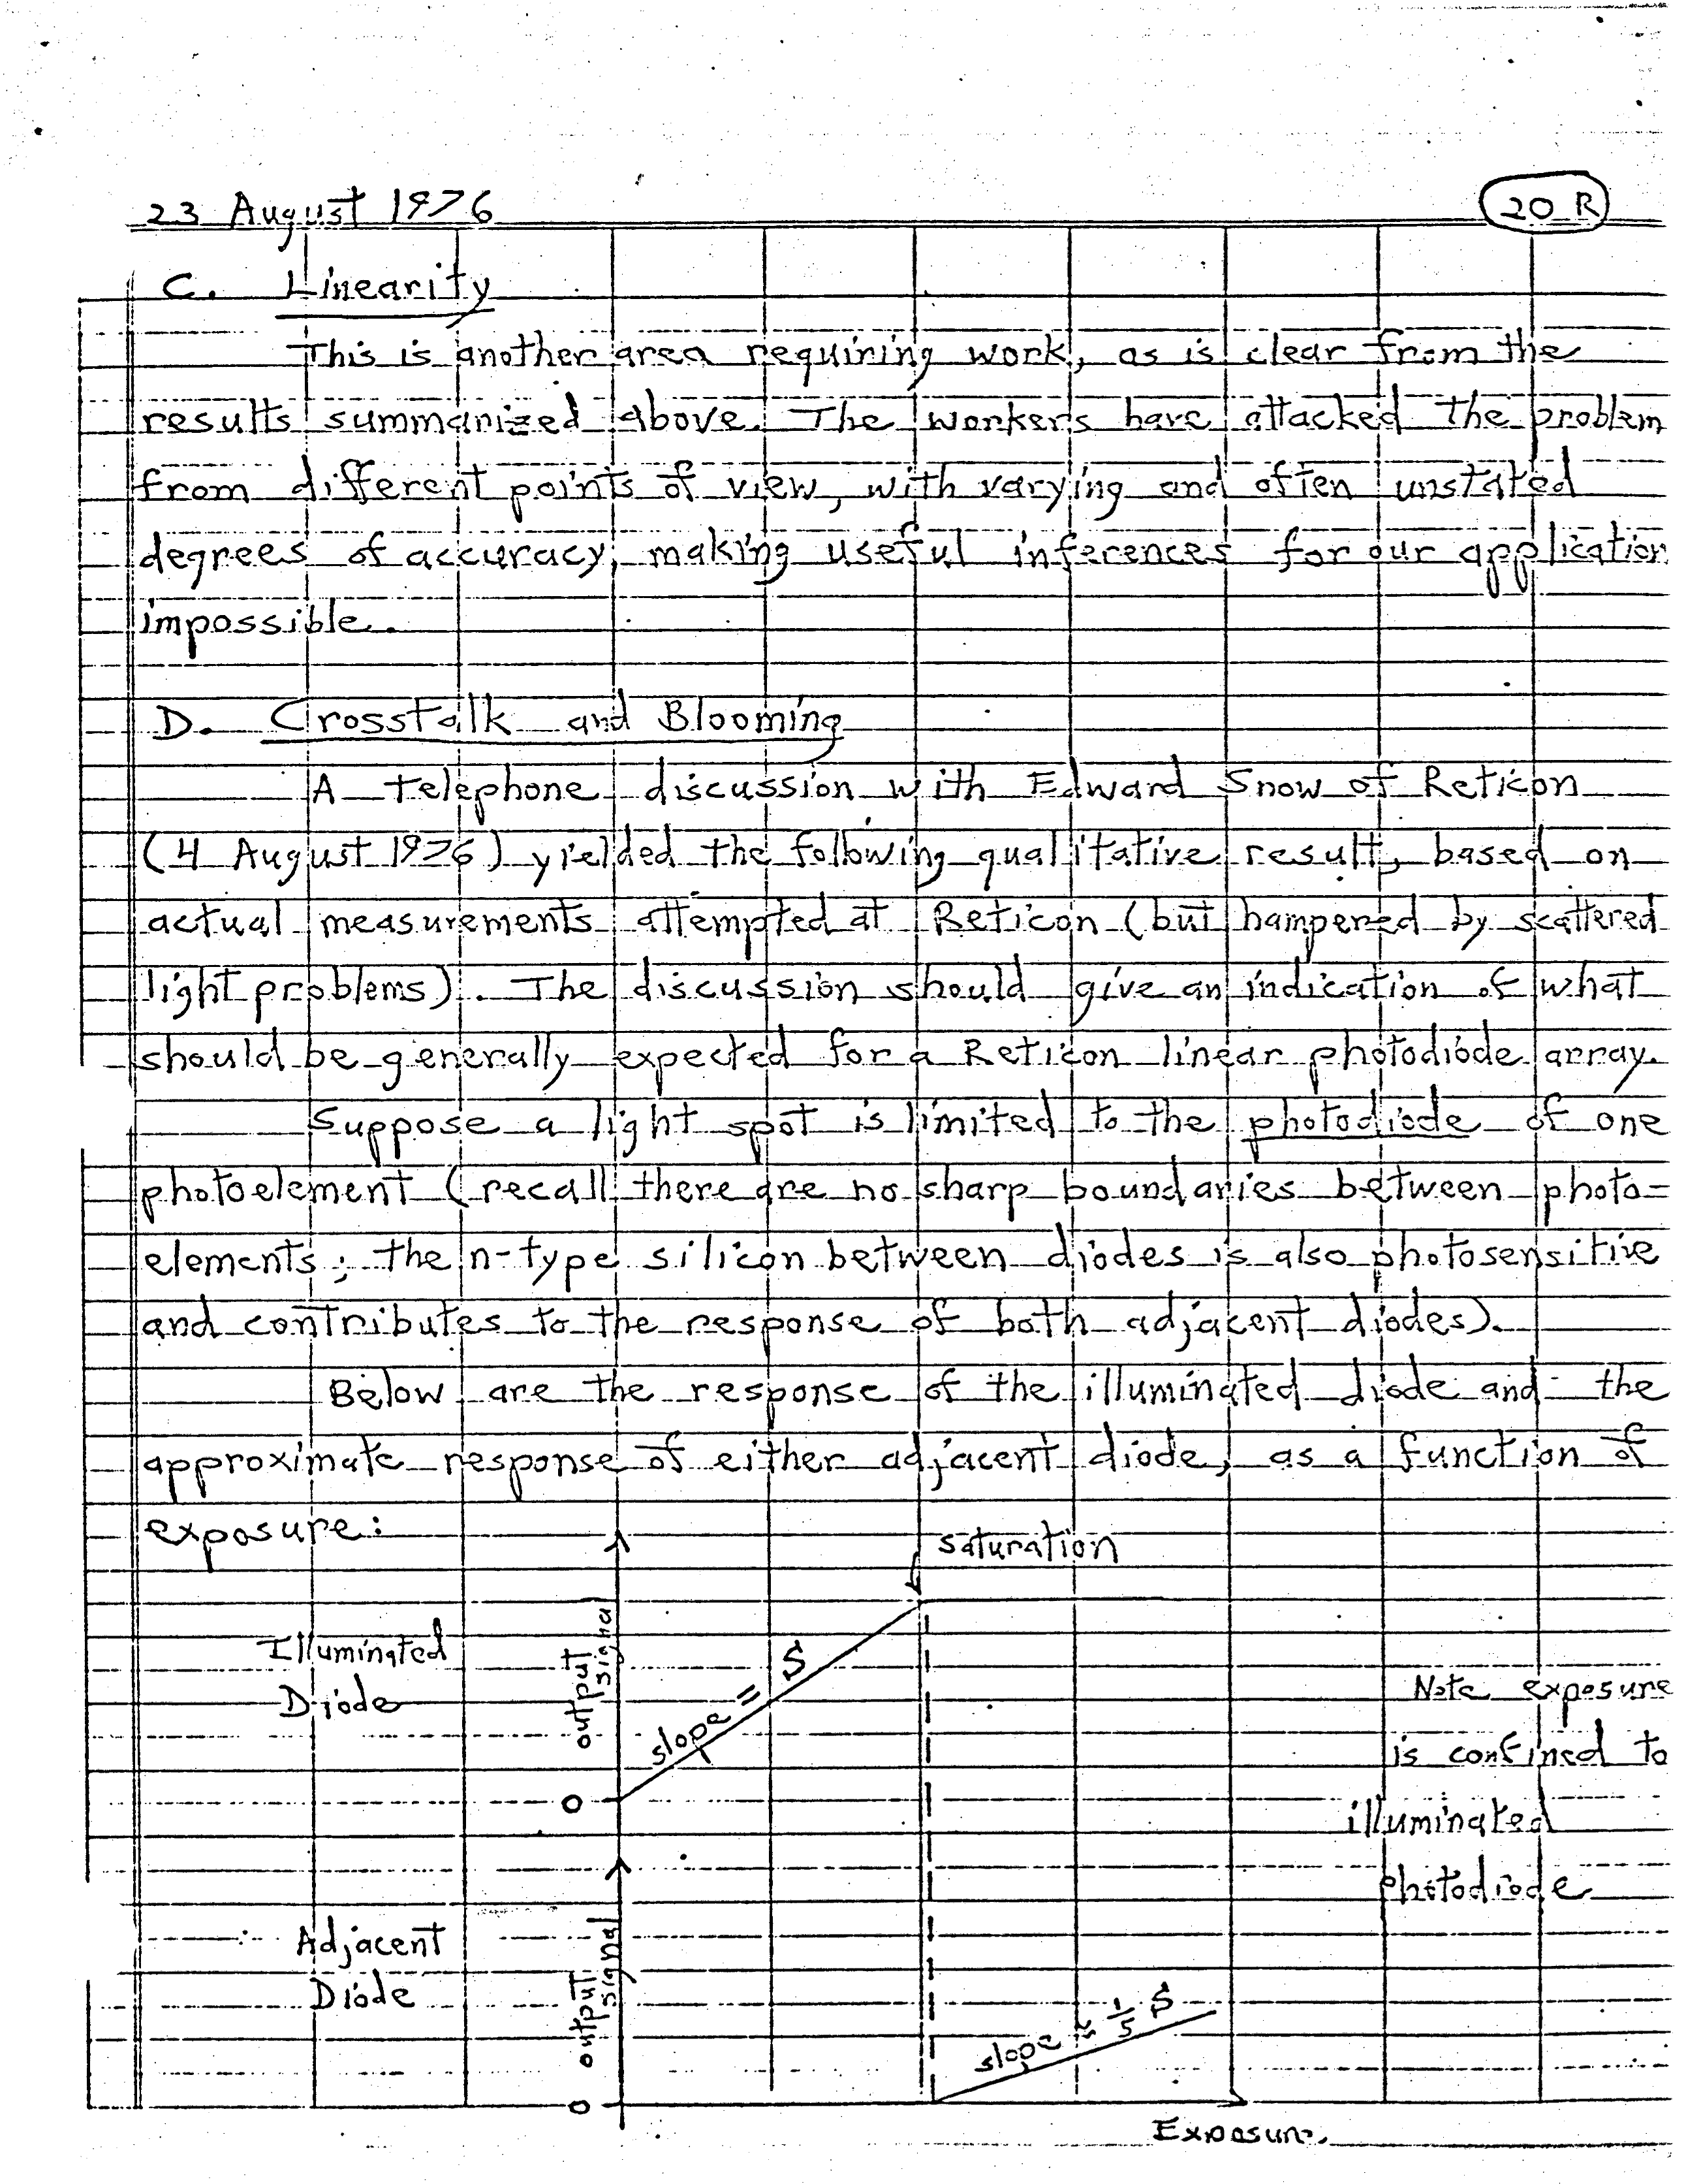 23 August 1976
20 R
C. Linearity
This is another area requiring work, as is clear from the
results summarized above. The workers have attacked the problem
from different points of view, with varying and often unstated
degrees of accuracy, making useful inferences for our application
impossible.
D. Crosstalk and Blooming
A telephone discussion with Edward Snow of Reticon
(4 August 1976) yielded the following qualitative result, based on
actual measurements attempted at Reticon (but hampered by scattered
light problems). The discussion should give an indication of what
should be generally expected for a Reticon linear photodiode array.
Suppose a light spot is limited to the photodiode of one
photoelement (recall there are no sharp boundaries between photo-
elements; the n-type silicon between diodes is also photosensitive
and contributes to the response of both adjacent diodes).
Below are the response of the illuminated diode and the
approximate response of either adjacent diode, as a function of
exposure:
saturation
Illuminated
Diode
output
signal
slope = S
0
Note exposure
is confined to
illuminated
photodiode
Adjacent
Diode
output
signal
slope ≈ 1/5 S
0
Exposure